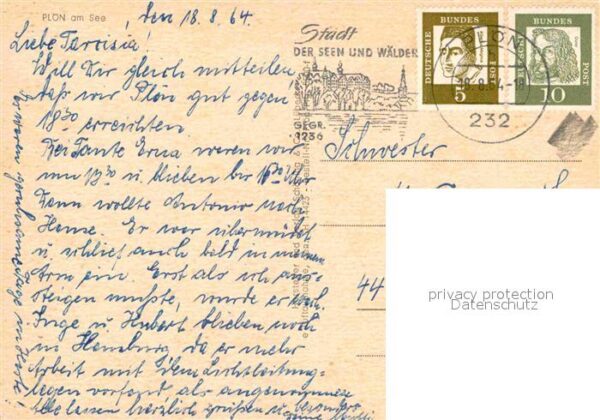 PLÖN am See
, den 18.8.64.
Liebe Tarcisia!
Will Dir gleich mitteilen,
daß wir Plön gut gegen
18³⁰ erreichten
Bei Tante Erna waren wir
um 13³⁰ u. blieben bis 16³⁰ Uhr
Dann wollte Antonio nach
Hause. Er war übermüdet
u. schlief auch bald in meinem
Arm ein. Erst als ich aus-
steigen mußte, wurde er wach.
Inge u. Hubert blieben noch
in Hamburg, da er mehr
Arbeit mit dem Lichtleitung-
legen vorfand als angenommen
Alle lassen herzlich grüßen u. besonders
Stadt
DER SEEN UND WÄLDER
GEGR.
1236
DEUTSCHE BUNDES POST
5
DEUTSCHE BUNDES POST
10
PLÖN
232
Schwester
44
privacy protection
Datenschutz